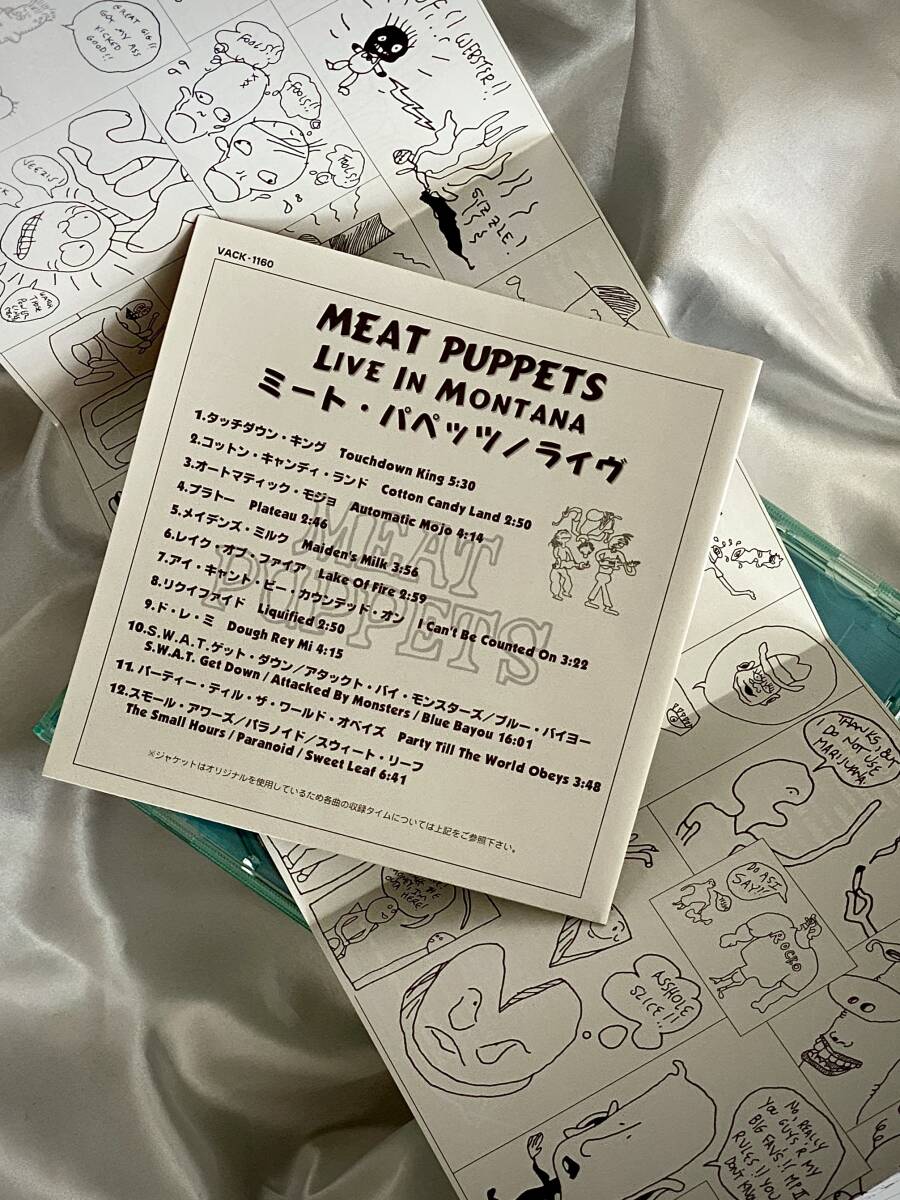 GREAT GIG!!
GOT MY ASS
KICKED
GOOD!!
FOOLS!!
FOOLS!!
FOOLS!!
WEBSTER!!
SIZZLE!
VEEZIS!
VACK-1160
MEAT PUPPETS
LIVE IN MONTANA
ミート・パペッツ/ライヴ
1.タッチダウン・キング Touchdown King 5:30
2.コットン・キャンディ・ランド Cotton Candy Land 2:50
3.オートマティック・モジョ Automatic Mojo 4:14
4.プラトー Plateau 2:46
5.メイデンズ・ミルク Maiden's Milk 3:56
6.レイク・オブ・ファイア Lake Of Fire 2:59
7.アイ・キャント・ビー・カウンテッド・オン I Can't Be Counted On 3:22
8.リクイファイド Liquified 2:50
9.ド・レ・ミ Dough Rey Mi 4:15
10.S.W.A.T.ゲット・ダウン/アタックト・バイ・モンスターズ/ブルー・バイヨー
S.W.A.T. Get Down / Attacked By Monsters / Blue Bayou 16:01
11.パーティー・ティル・ザ・ワールド・オベイズ Party Till The World Obeys 3:48
12.スモール・アワーズ/パラノイド/スウィート・リーフ
The Small Hours / Paranoid / Sweet Leaf 6:41
※ジャケットはオリジナルを使用しているため各曲の収録タイムについては上記をご参照下さい。
MEAT
PUPPETS
THANKS, BUT
I DO NOT USE
MARIJUANA.
DO AS I
SAY!!
ROCKO
ASSHOLE
SLICE!!
NO, REALLY
YOU GUYS'R MY
BIG FAVS!! MPT
RULES!! YOU
DON'T KNOW